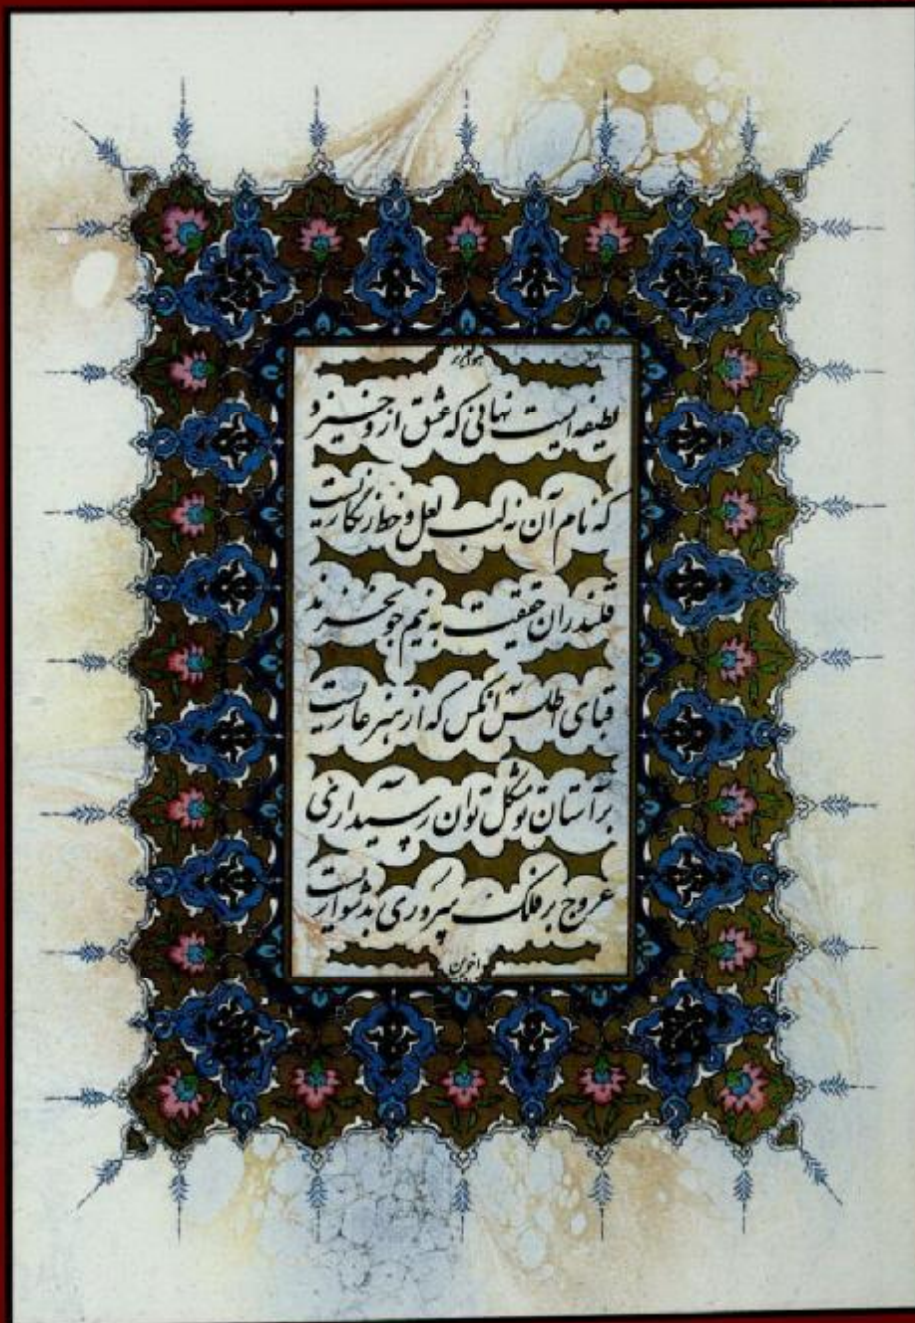 هوالعزیز
لطیفه ایست نهانی که عشق از و خیزد
که نام آن نه لب لعل و خط زنگاریست
قلندران حقیقت به نیم جو نخرند
قبای اطلس آنکس که از هنر عاریست
بر آستان تو مشکل توان رسید آری
عروج بر فلک سروری بدشواریست
اخوین